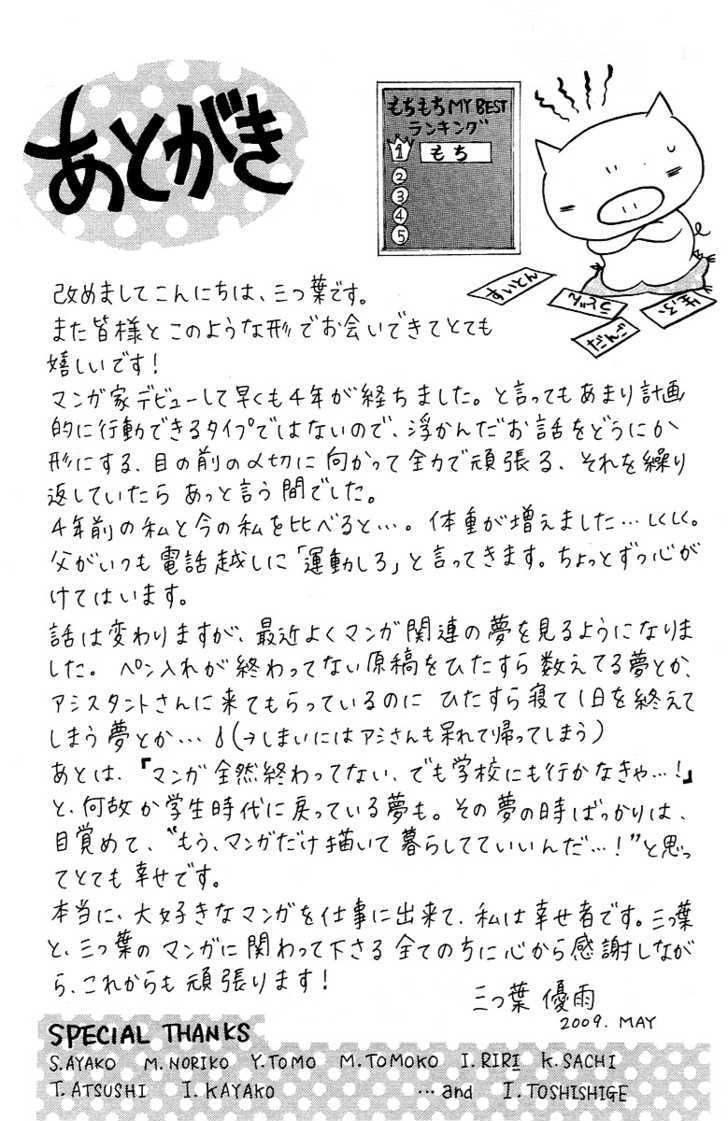 あとがき
もちもちMY BEST
ランキング
1 もち
2
3
4
5
すいとん
うどん
だんご
改めましてこんにちは、三つ葉です。
また皆様とこのような形でお会いできてとても
嬉しいです!
マンガ家デビューして早くも4年が経ちました。と言ってもあまり計画
的に行動できるタイプではないので、浮かんだお話をどうにか
形にする、目の前の〆切に向かって全力で頑張る、それを繰り
返していたらあっと言う間でした。
4年前の私と今の私を比べると…。体重が増えました…しくしく。
父がいつも電話越しに「運動しろ」と言ってきます。ちょっとずつ心が
けてはいます。
話は変わりますが、最近よくマンガ関連の夢を見るようになりま
した。ペン入れが終わってない原稿をひたすら数えてる夢とか、
アシスタントさんに来てもらっているのにひたすら寝て1日を終えて
しまう夢とか…(→しまいにはアシさんも呆れて帰ってしまう)
あとは、『マンガ全然終わってない、でも学校にも行かなきゃ…!』
と、何故か学生時代に戻っている夢も。その夢の時ばっかりは、
目覚めて、〝もう、マンガだけ描いて暮らしてていいんだ…!〟と思っ
てとても幸せです。
本当に、大好きなマンガを仕事に出来て、私は幸せ者です。三つ葉
と、三つ葉のマンガに関わって下さる全てのちに心から感謝しなが
ら、これからも頑張ります!
三つ葉優雨
2009. MAY
SPECIAL THANKS
S.AYAKO M.NORIKO Y.TOMO M.TOMOKO I.RIRI K.SACHI
T.ATSUSHI I.KAYAKO …and I.TOSHISHIGE